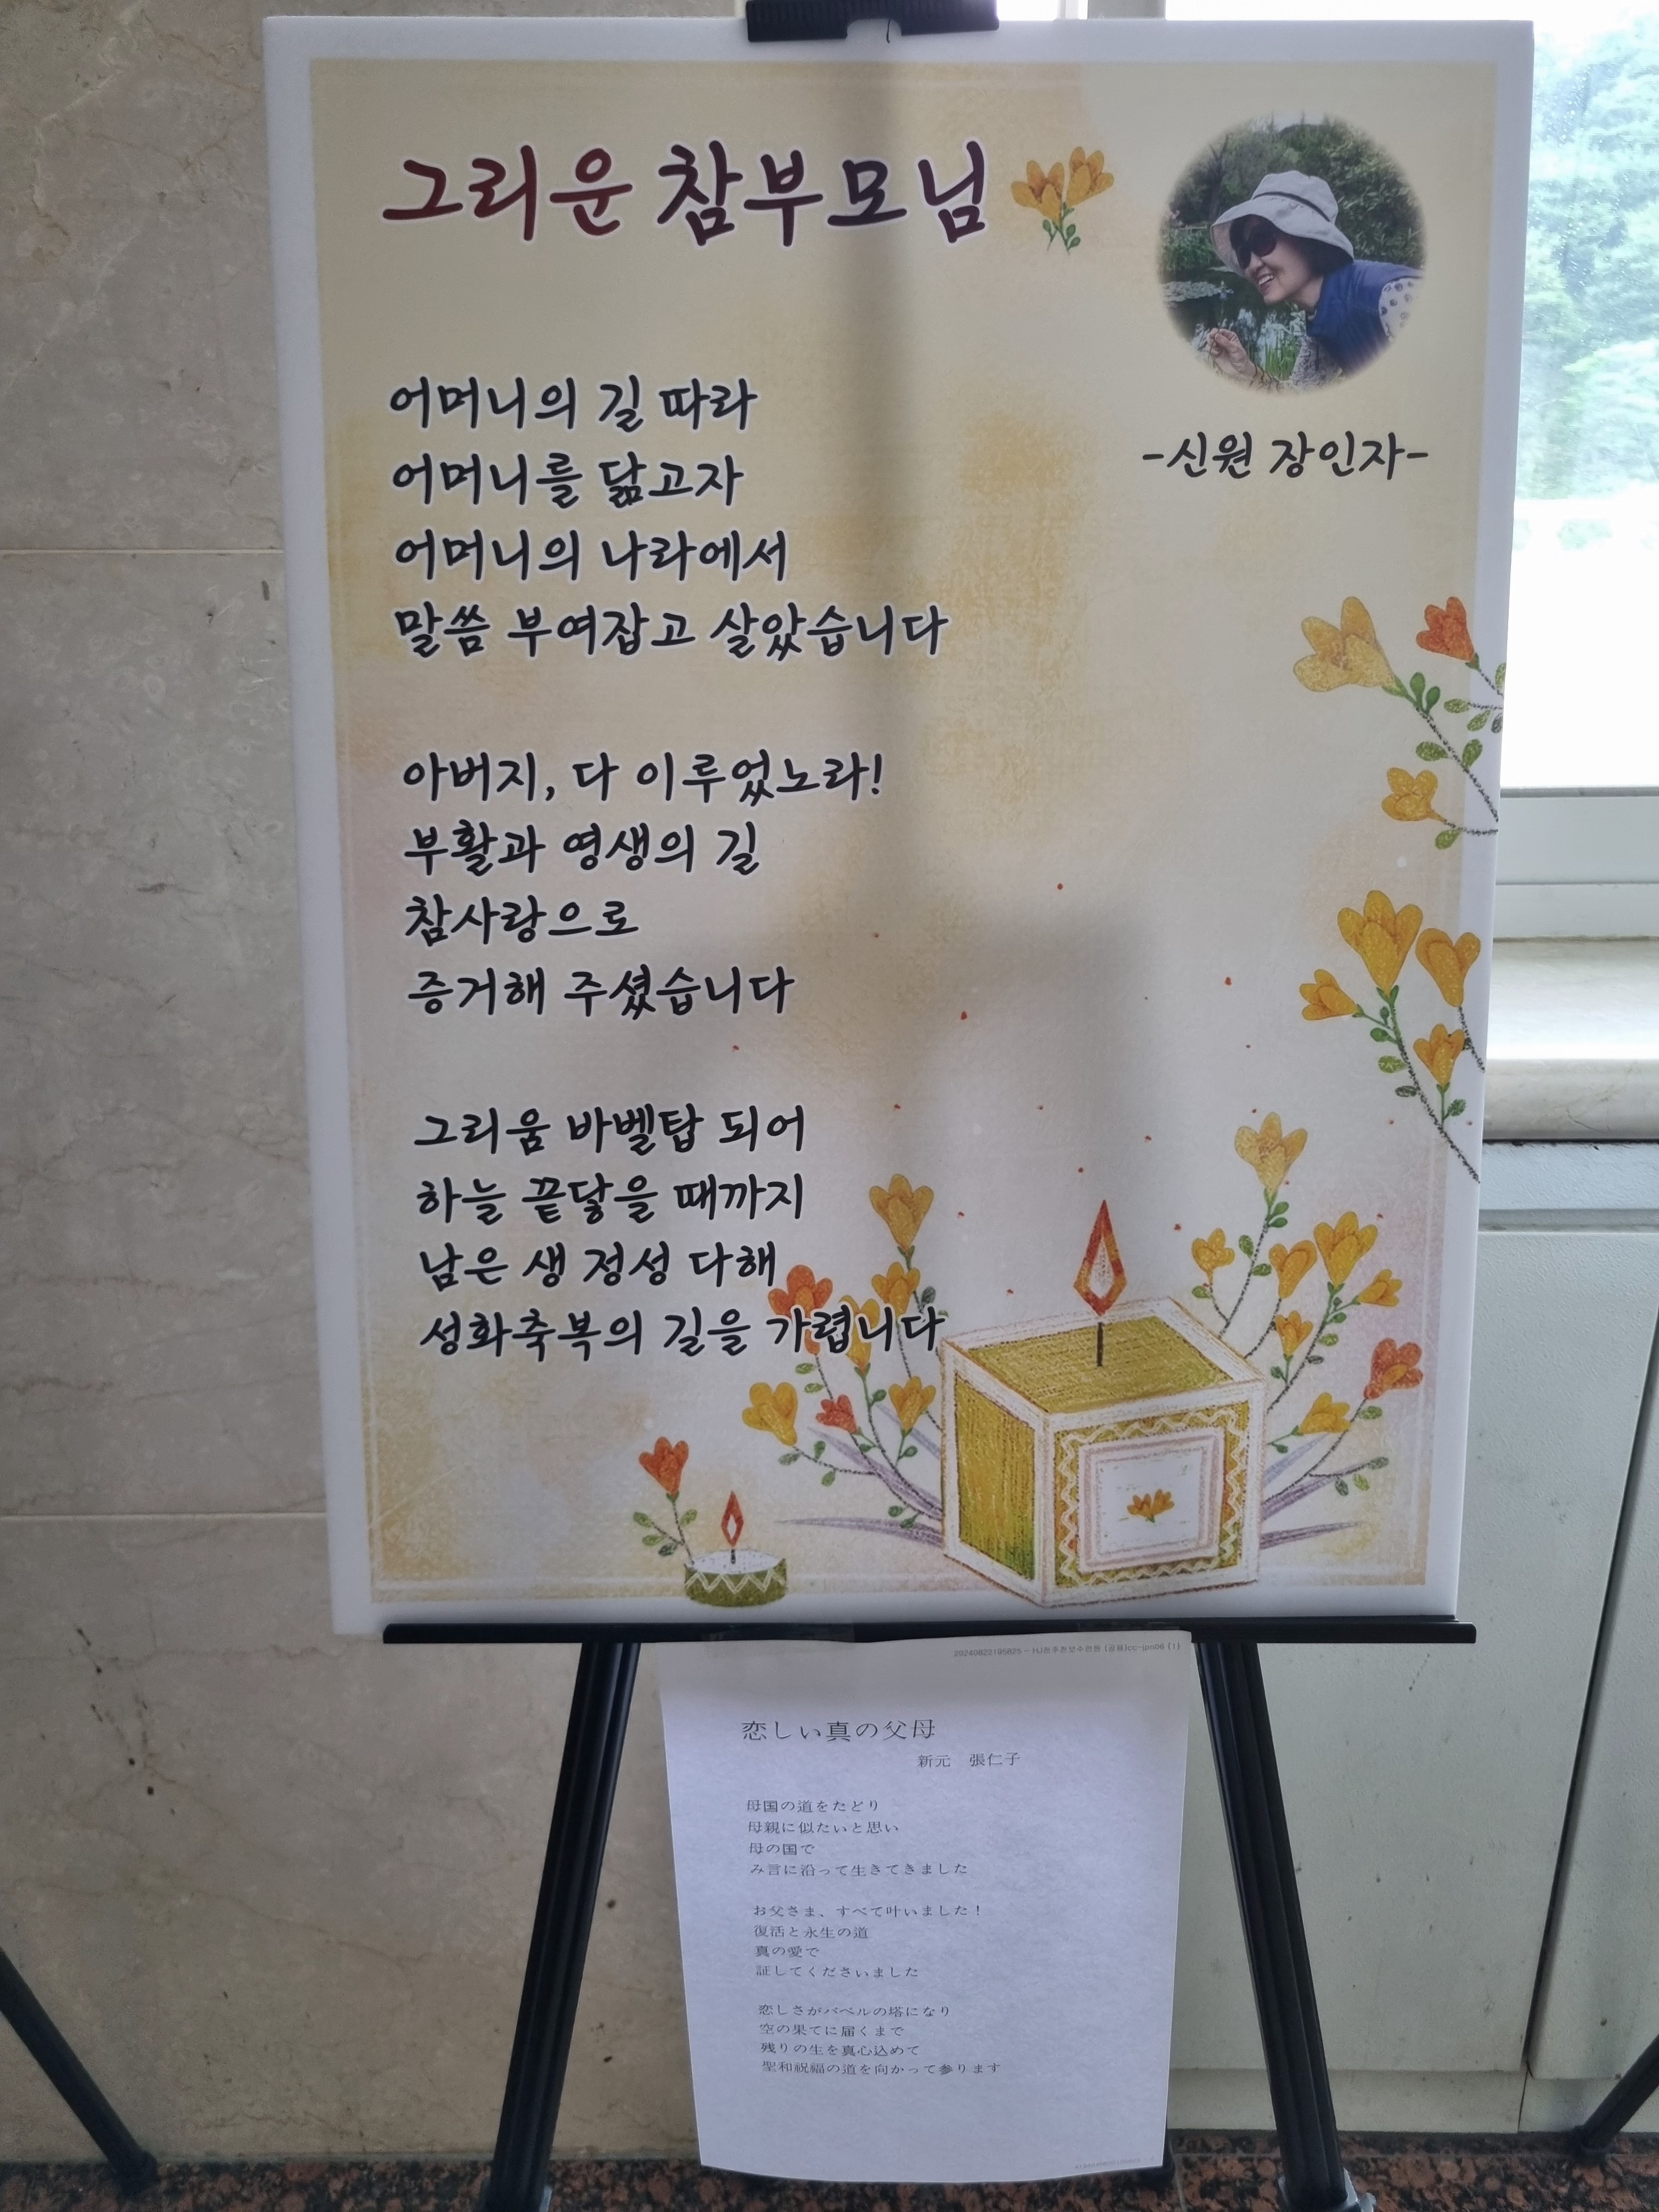 그리운 참부모님
-신원 장인자-
어머니의 길 따라
어머니를 닮고자
어머니의 나라에서
말씀 부여잡고 살았습니다
아버지, 다 이루었노라!
부활과 영생의 길
참사랑으로
증거해 주셨습니다
그리움 바벨탑 되어
하늘 끝닿을 때까지
남은 생 정성 다해
성화축복의 길을 가렵니다
恋しい真の父母
新元 張仁子
母国の道をたどり
母親に似たいと思い
母の国で
み言に沿って生きてきました
お父さま、すべて叶いました！
復活と永生の道
真の愛で
証してくださいました
恋しさがバベルの塔になり
空の果てに届くまで
残りの生を真心込めて
聖和祝福の道を向かって参ります